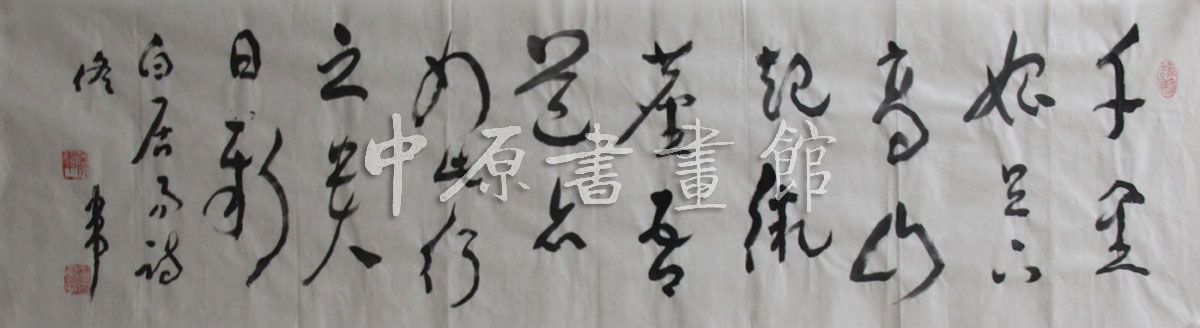 千里
始足下
高山
起微
塵吾
道亦
如此行
之貴
日新
白居易詩
佟韋
中原書畫館